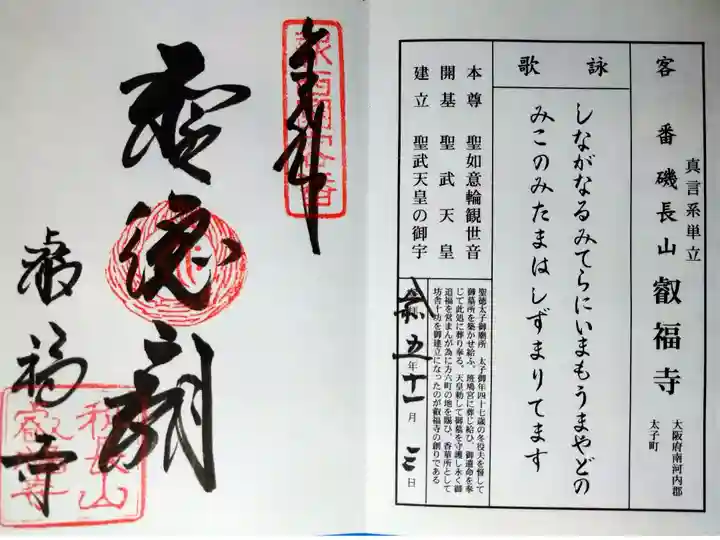 客番 磯長山 叡福寺
真言系単立
大阪府南河内郡
太子町
詠歌
しながなるみてらにいまもうまやどの
みこのみたまはしずまりてます
本尊 聖如意輪観世音
開基 聖武天皇
建立 聖武天皇の御宇
聖徳太子御廟所 太子御年四十七歳の冬役夫を督して
御墓所を築かせ給ふ、斑鳩宮に葬じ給ひ、御遺命を奉
じて此処に葬り奉る。天皇勅して御墓を守護し永く御
追福を営まんが為に方六町の地を賜ひ、香華所として
坊舎十坊を御建立になったのが叡福寺の創りである
五年十一月三日
奉拝
聖徳廟
叡福寺
磯長山
叡福寺